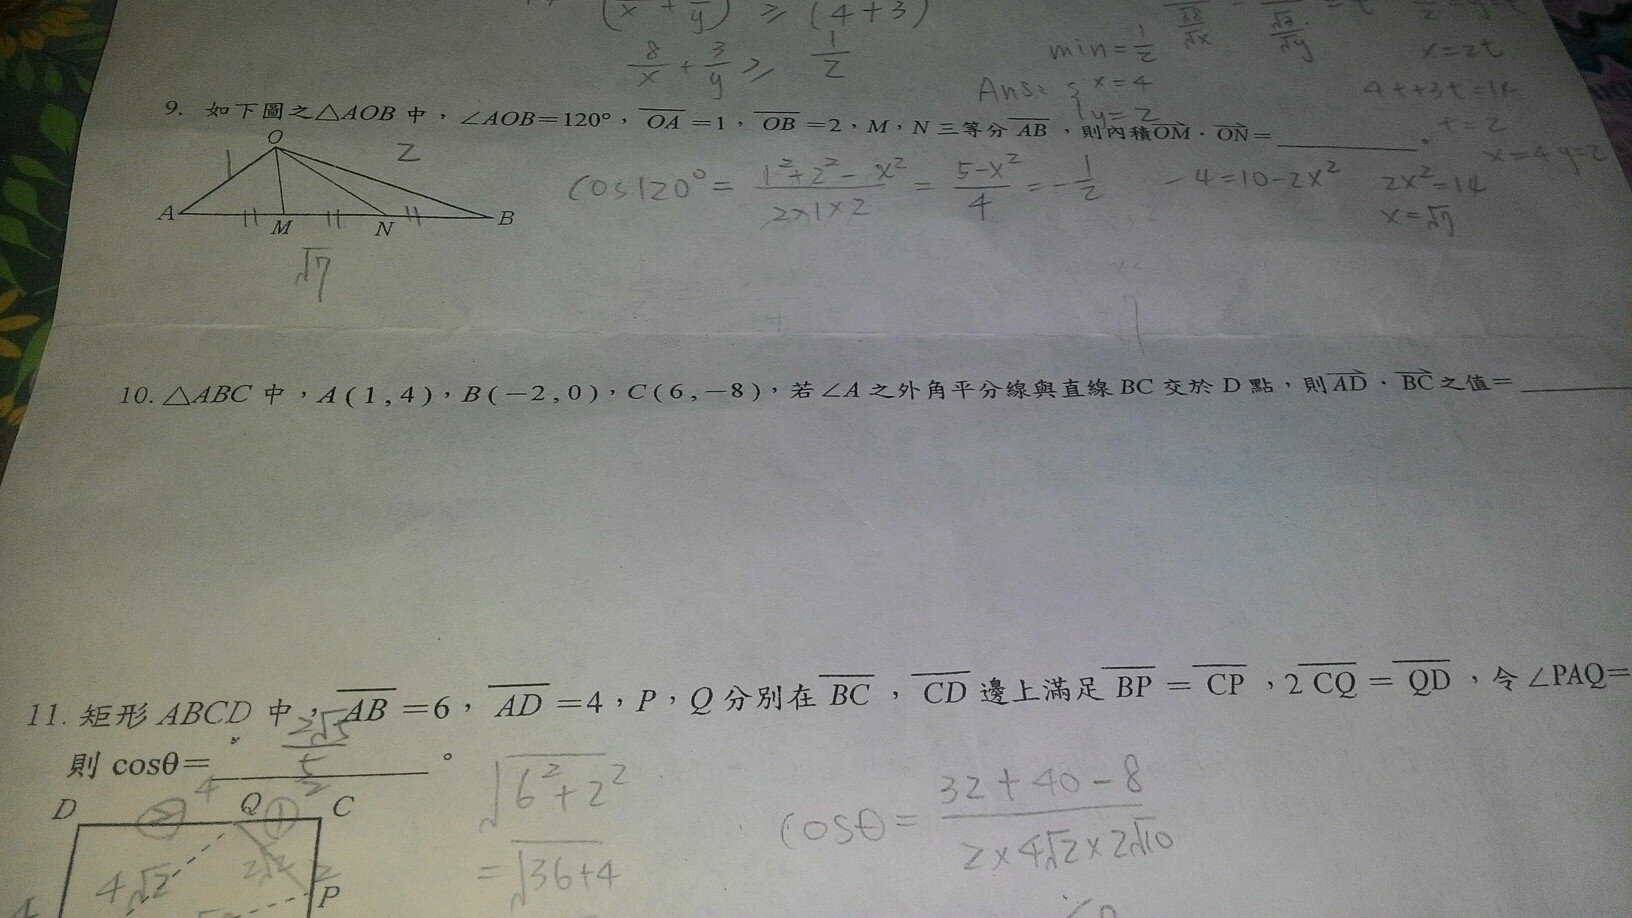 8/x + 3/y ≥ 1/2
(4+3)
min = 1/2
Ans: { x=4
y=2
x=2t
4t+3t=14
t=2
x=4 y=2
9. 如下圖之△AOB 中，∠AOB=120°，OA=1，OB=2，M，N 三等分 AB，則內積OM．ON=________。
O
1
2
A
M
N
B
√7
cos120°= (1²+2²-x²)/(2×1×2) = (5-x²)/4 = -1/2
-4=10-2x²
2x²=14
x=√7
10. △ABC 中，A(1,4)，B(-2,0)，C(6,-8)，若∠A 之外角平分線與直線 BC 交於 D 點，則AD．BC之值=________
11. 矩形 ABCD 中，AB=6，AD=4，P，Q 分別在 BC，CD 邊上滿足 BP=CP，2CQ=QD，令∠PAQ=
則 cosθ= 2√5/5 。
D
4
Q
2
C
② ①
4√2
2√2
2
P
√(6²+2²)
=√(36+4)
cosθ= (32+40-8)/(2×4√2×2√10)